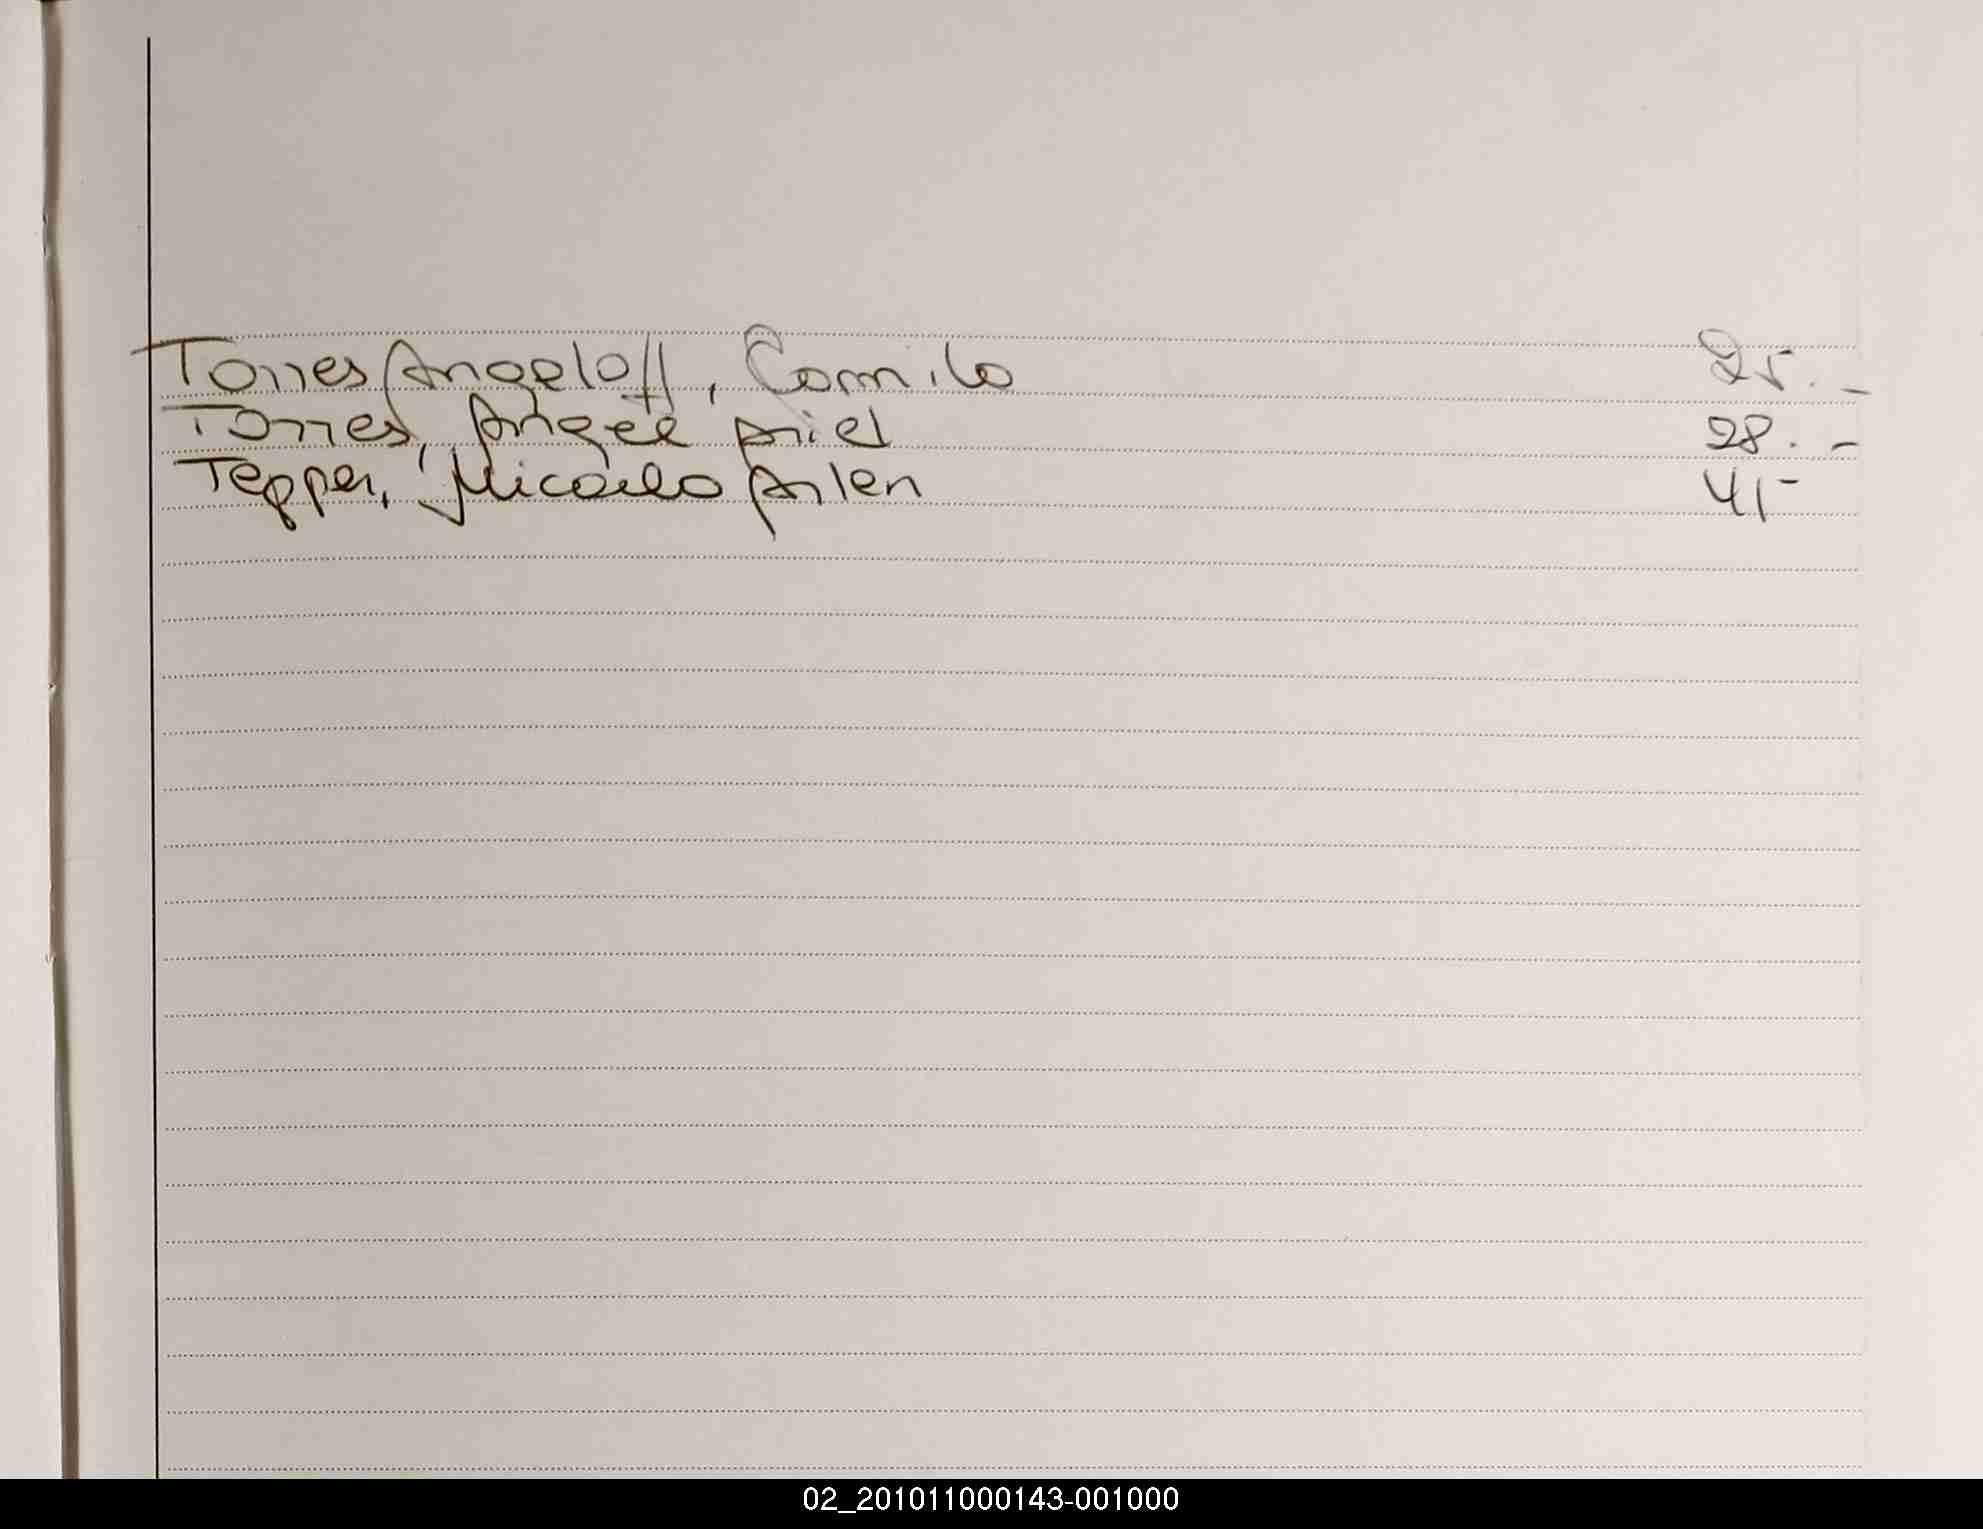 Torres Angeloff, Camila 25.-
Torres, Angel Ariel 28.-
Tepper, Micaela Arlen 41-
02_201011000143-001000